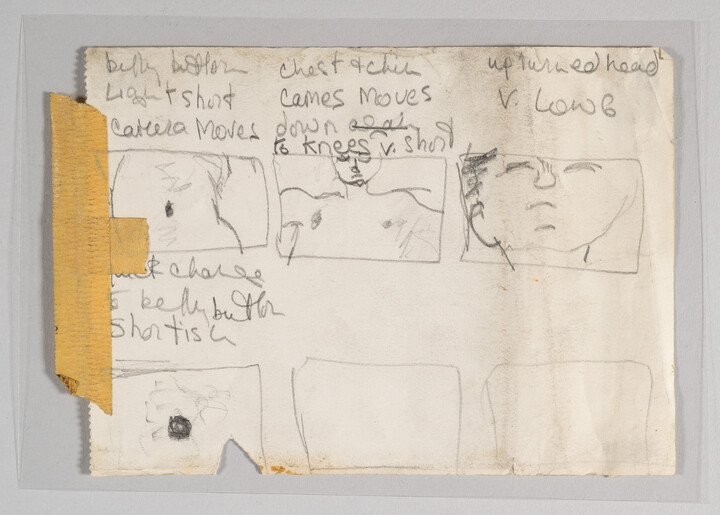 belly button
Light short
camera Moves
chest + chin
cames Moves
down
to knees v. short
upturned head
V. LONG
quick change
to belly button
Shortish